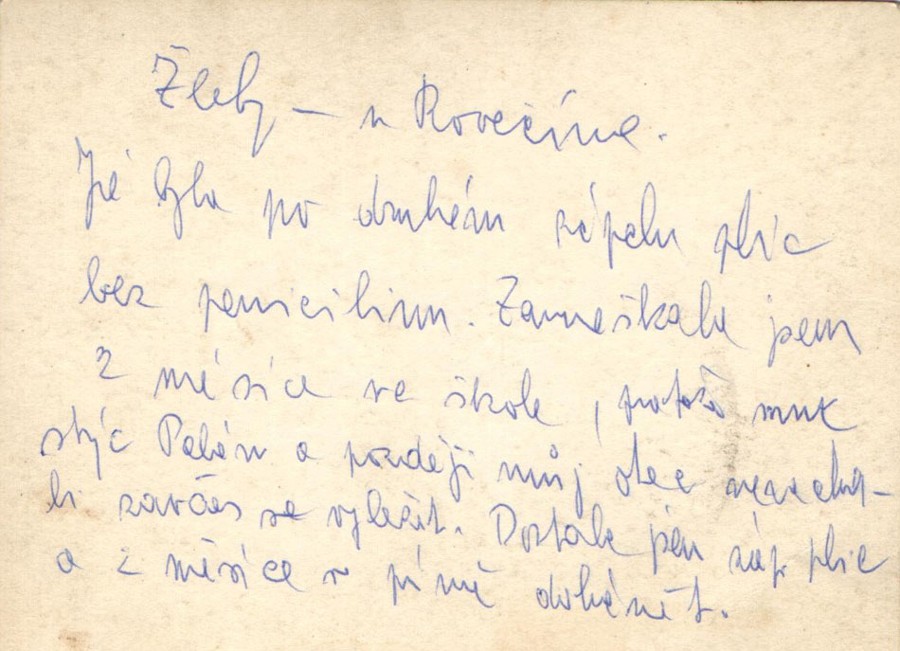 Žleby – u Rovečína.
Já byla po druhém zápalu plic
bez penicilinu. Zameškala jsem
2 měsíce ve škole, protože
strýc a později můj otec nenecha-
li zavčas se vyléčit. Dostala jsem záp. plic
a 2 měsíce v dohánět.